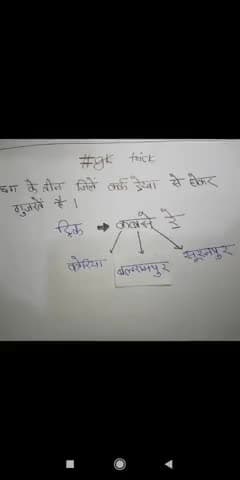 #gk trick
cg के तीन जिले कर्क रेखा से होकर
गुजरते है ।
ट्रिक → कबसे रे
कोरिया बलरामपुर सूरजपुर